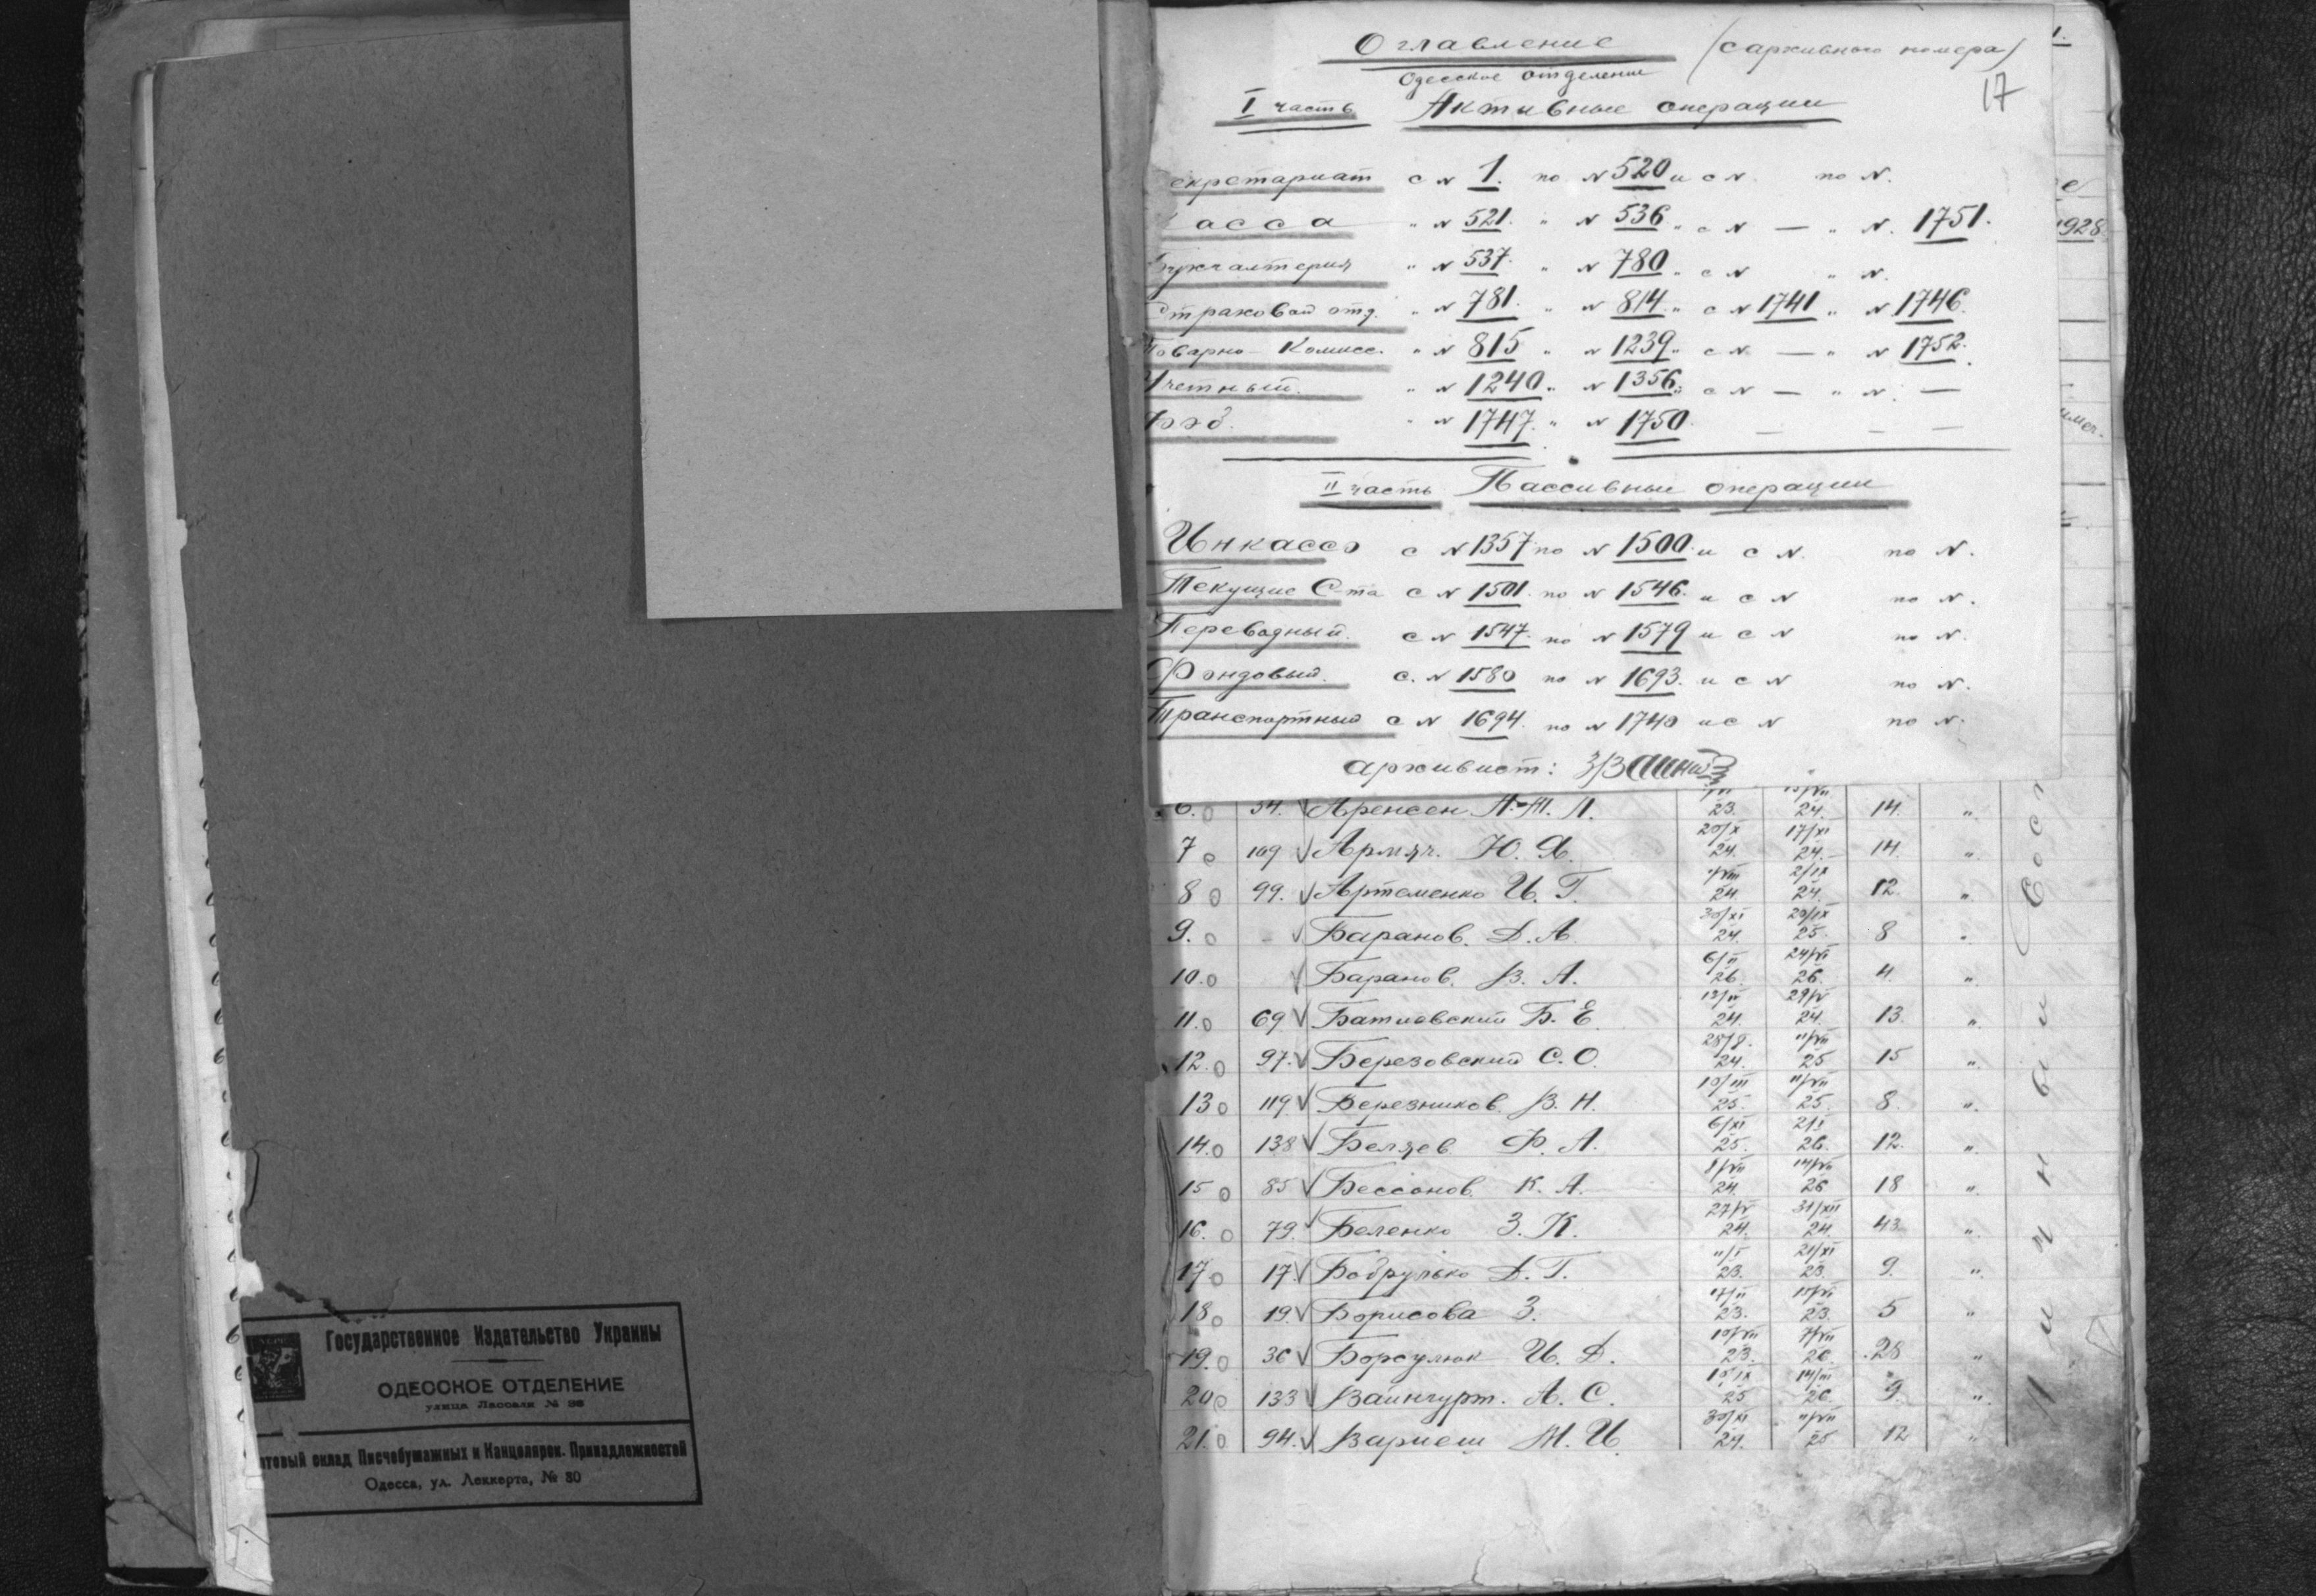 Оглавление (с архивного номера)
Одесское отделение
17
I часть Активные операции
екретариат с № 1. по № 520 и с № по №.
асса " № 521. " № 536 " с № — " №. 1751.
Бухгалтерия " № 537. " № 780 " с № " №.
Страховой отд. " № 781. " № 814 " с № 1741 " № 1746.
Товарно-Комисс. " № 815 " № 1239 " с № — " № 1752.
Учетный. " № 1240 " № 1356 " с № — " №. —
" № 1747. " № 1750. — — —
II часть Пассивные операции
Инкассо с № 1357 по № 1500 и с №. по №.
Текущие Ста с № 1501. по № 1546. и с № по №.
Переводный. с № 1547. по № 1579 и с № по №.
Фондовый. с. № 1580 по № 1693. и с № по №.
Транспортный с № 1694. по № 1740 и с № по №.
архивист:
928
6. 54. Аренсен А-М. Л. 23. 24. 14. "
7 109 Армяч. Ю. Я. 20/X 24. 17/XI 24. 14. "
8 99. Артеменко И. Г. 24. 2/IX 24. 12. "
9. - Баранов. Д. А. 30/XI 24. 20/IX 25. 8 "
10. Баранов. В. А. 6/II 26. 24/VI 26. 4. "
11. 69 Батиовский Б. Е. 24. 29/V 24. 13. "
12. 97. Березовский С. О. 24. 11/VII 25 15 "
13 119 Березников В. Н. 10/III 25. 11/VII 25. 8. "
14. 138 Беляев Ф. А. 6/XI 25. 21/I 26. 12. "
15 85 Бессонов К. А. 8/VII 24. 14/VII 26 18 "
16. 79. Беленко З. К. 27/V 24. 31/XII 24. 43 "
17 17. Бобрулько Д. Г. 11/I 23. 21/XI 23. 9. "
18 19. Борисова З. 17/II 23. 15/VI 23. 5 "
19. 36 Борсулюк И. Д. 10/VII 23. 7/VII 26. 28 "
20 133 Вайнгурт. А. С. 15/IX 25 14/III 26 9. "
21. 94. Варнеш М. И. 30/XI 24. 11/VII 25 12 "
Личный Сос
Государственное Издательство Украины
ОДЕССКОЕ ОТДЕЛЕНИЕ
улица Лассаля № 33
товый склад Писчебумажных и Канцелярск. Принадлежностей
Одесса, ул. Леккерта, № 30